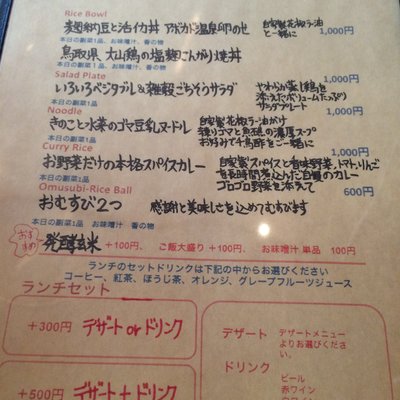 Rice Bowl
麹納豆と活イカ丼 アボカド温泉卵のせ 自家製花椒ラー油と一緒に 1,000円
本日の副菜1品、お味噌汁、香の物
鳥取県 大山鶏の塩麹こんがり焼丼 1,000円
本日の副菜1品、お味噌汁、香の物
Salad Plate
いろいろベジタブル&雑穀ごちそうサラダ やわらか蒸し鶏を添えたボリュームたっぷりサラダプレート 1,000円
本日の副菜1品
Noodle
きのこと水菜のゴマ豆乳ヌードル 自家製花椒ラー油がけ 1,000円
練りゴマと魚醤の濃厚スープ
お好みで千鳥酢をご一緒に
本日の副菜1品
Curry Rice
お野菜だけの本格スパイスカレー 自家製スパイスと香味野菜、トマト、りんごを長時間煮込んだ自慢のカレー 1,000円
ゴロゴロ野菜を添えて
本日の副菜1品
Omusubi-Rice Ball
おむすび2つ 感謝と美味しさを込めてむすびます 600円
本日の副菜1品、お味噌汁、香の物
おすすめ 発酵玄米 +100円、 ご飯大盛り +100円、 お味噌汁 単品 100円
ランチのセットドリンクは下記の中からお選びください
コーヒー、紅茶、ほうじ茶、オレンジ、グレープフルーツジュース
ランチセット
+300円 デザート or ドリンク
+500円 デザート + ドリンク
デザート デザートメニューよりお選びください。
ドリンク
ビール
赤ワイン